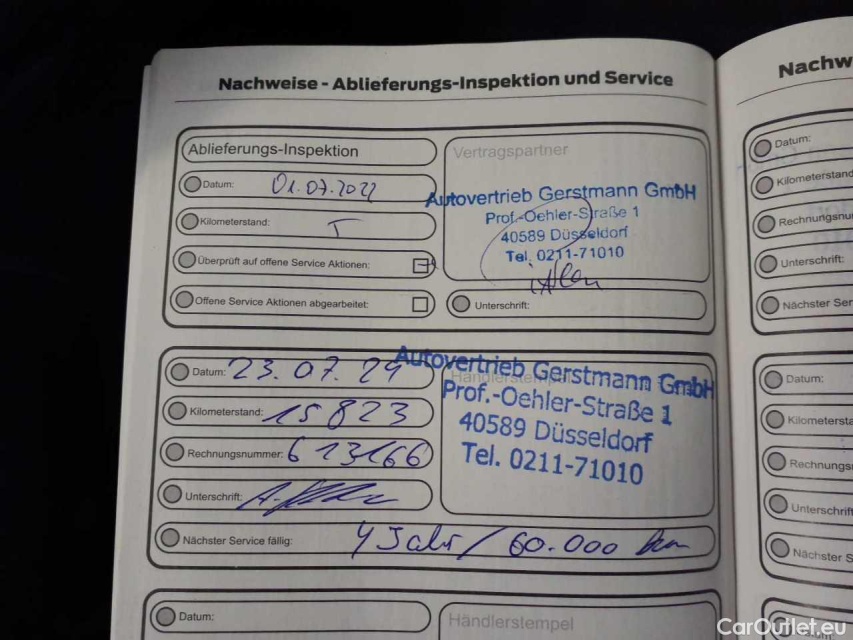 Nachweise - Ablieferungs-Inspektion und Service
Ablieferungs-Inspektion
Vertragspartner
Datum: 01.07.2022
Autovertrieb Gerstmann GmbH
Prof.-Oehler-Straße 1
40589 Düsseldorf
Tel. 0211-71010
Kilometerstand:
Überprüft auf offene Service Aktionen:
Offene Service Aktionen abgearbeitet:
Unterschrift:
Datum: 23.07.24
Kilometerstand: 15823
Rechnungsnummer: 613166
Unterschrift:
Händlerstempel
Autovertrieb Gerstmann GmbH
Prof.-Oehler-Straße 1
40589 Düsseldorf
Tel. 0211-71010
Nächster Service fällig: 4 Jahr / 60.000 km
Datum:
Händlerstempel
Nachw
Datum:
Kilometerstand
Rechnungsnu
Unterschrift:
Nächster Ser
Datum:
Kilometersta
Rechnungs
Unterschrift
Nächster S
CarOutlet.eu